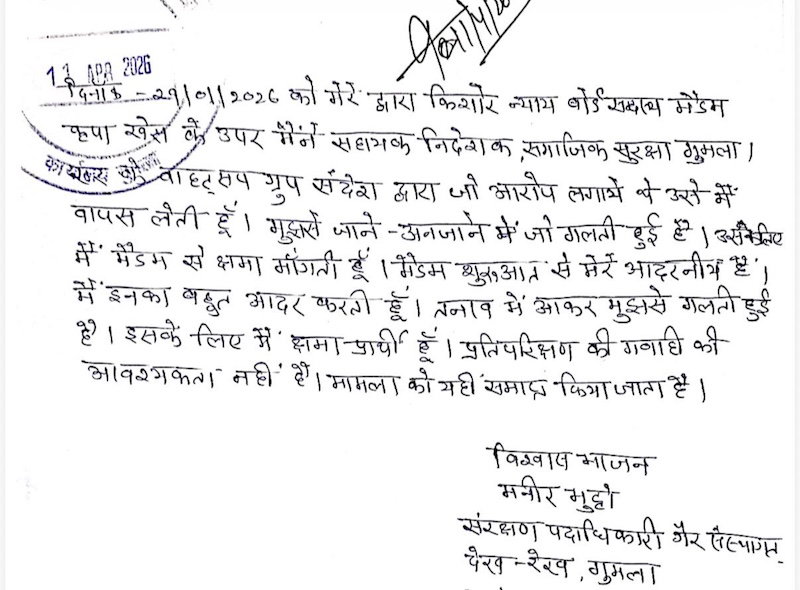 11 APR 2026
दिनांक - 29/01/2026 को मेरे द्वारा किशोर न्याय बोर्ड सदस्य मैडम
कृपा खेस के उपर मैंने सहायक निदेशक, समाजिक सुरक्षा गुमला।
को वाहट्सप ग्रुप संदेश द्वारा जो आरोप लगाये थे उसे मैं
वापस लेती हूँ। मुझसे जाने-अनजाने में जो गलती हुई है। उसके लिए
मैं मैडम से क्षमा माँगती हूँ। मैडम शुरुआत से मेरे आदरनीय है।
मैं इनका बहुत आदर करती हूँ। तनाव में आकर मुझसे गलती हुई
है। इसके लिए मैं क्षमा-प्रार्थी हूँ। प्रतिपरिक्षण की गवाहि की
आवश्यकता नहीं है। मामला को यही समाप्त किया जाता है।
विश्वास भाजन
मनीर
संरक्षण पदाधिकारी गैर संस्थागत
देख-रेख, गुमला